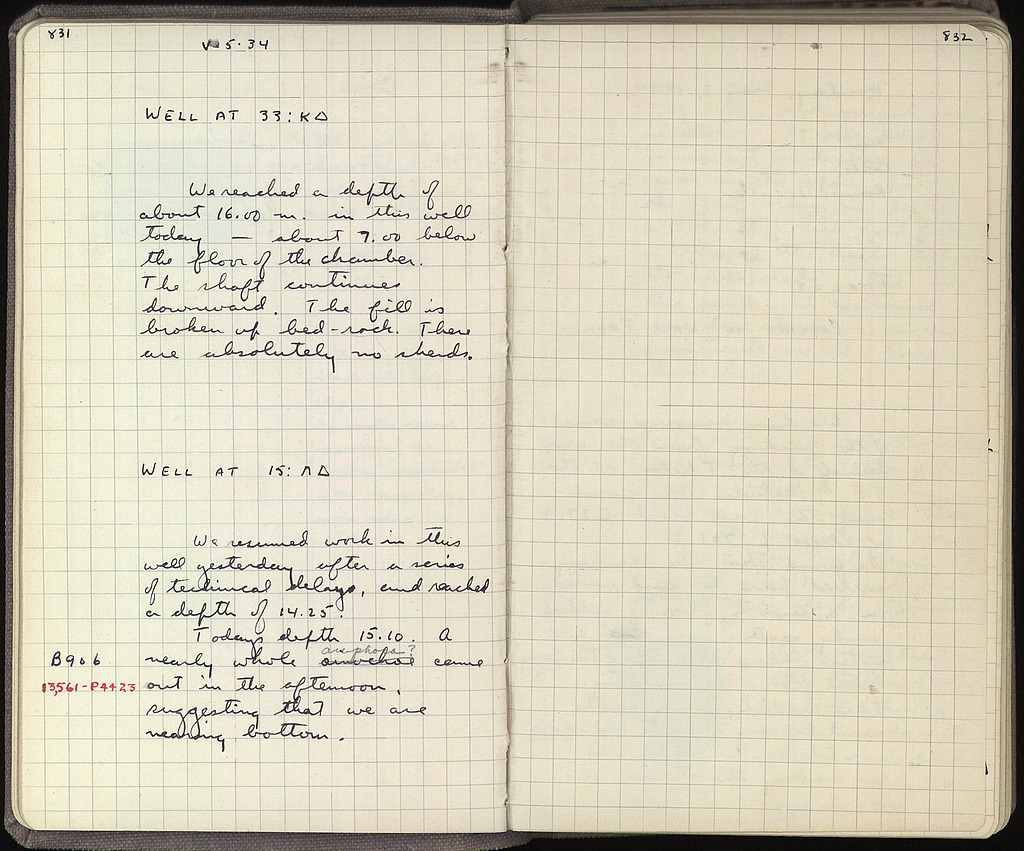 831
V·5·34
WELL AT 33:ΚΔ
We reached a depth of
about 16.00 m. in this well
today — about 7.00 below
the floor of the chamber.
The shaft continues
downward. The fill is
broken up bed-rock. There
are absolutely no sherds.
WELL AT 15:ΛΔ
We resumed work in this
well yesterday after a series
of technical delays, and reached
a depth of 14.25.
Todays depth 15.10. A
amphora?
B906 nearly whole oinochoe came
13,561-P4423 out in the afternoon,
suggesting that we are
nearing bottom.
832